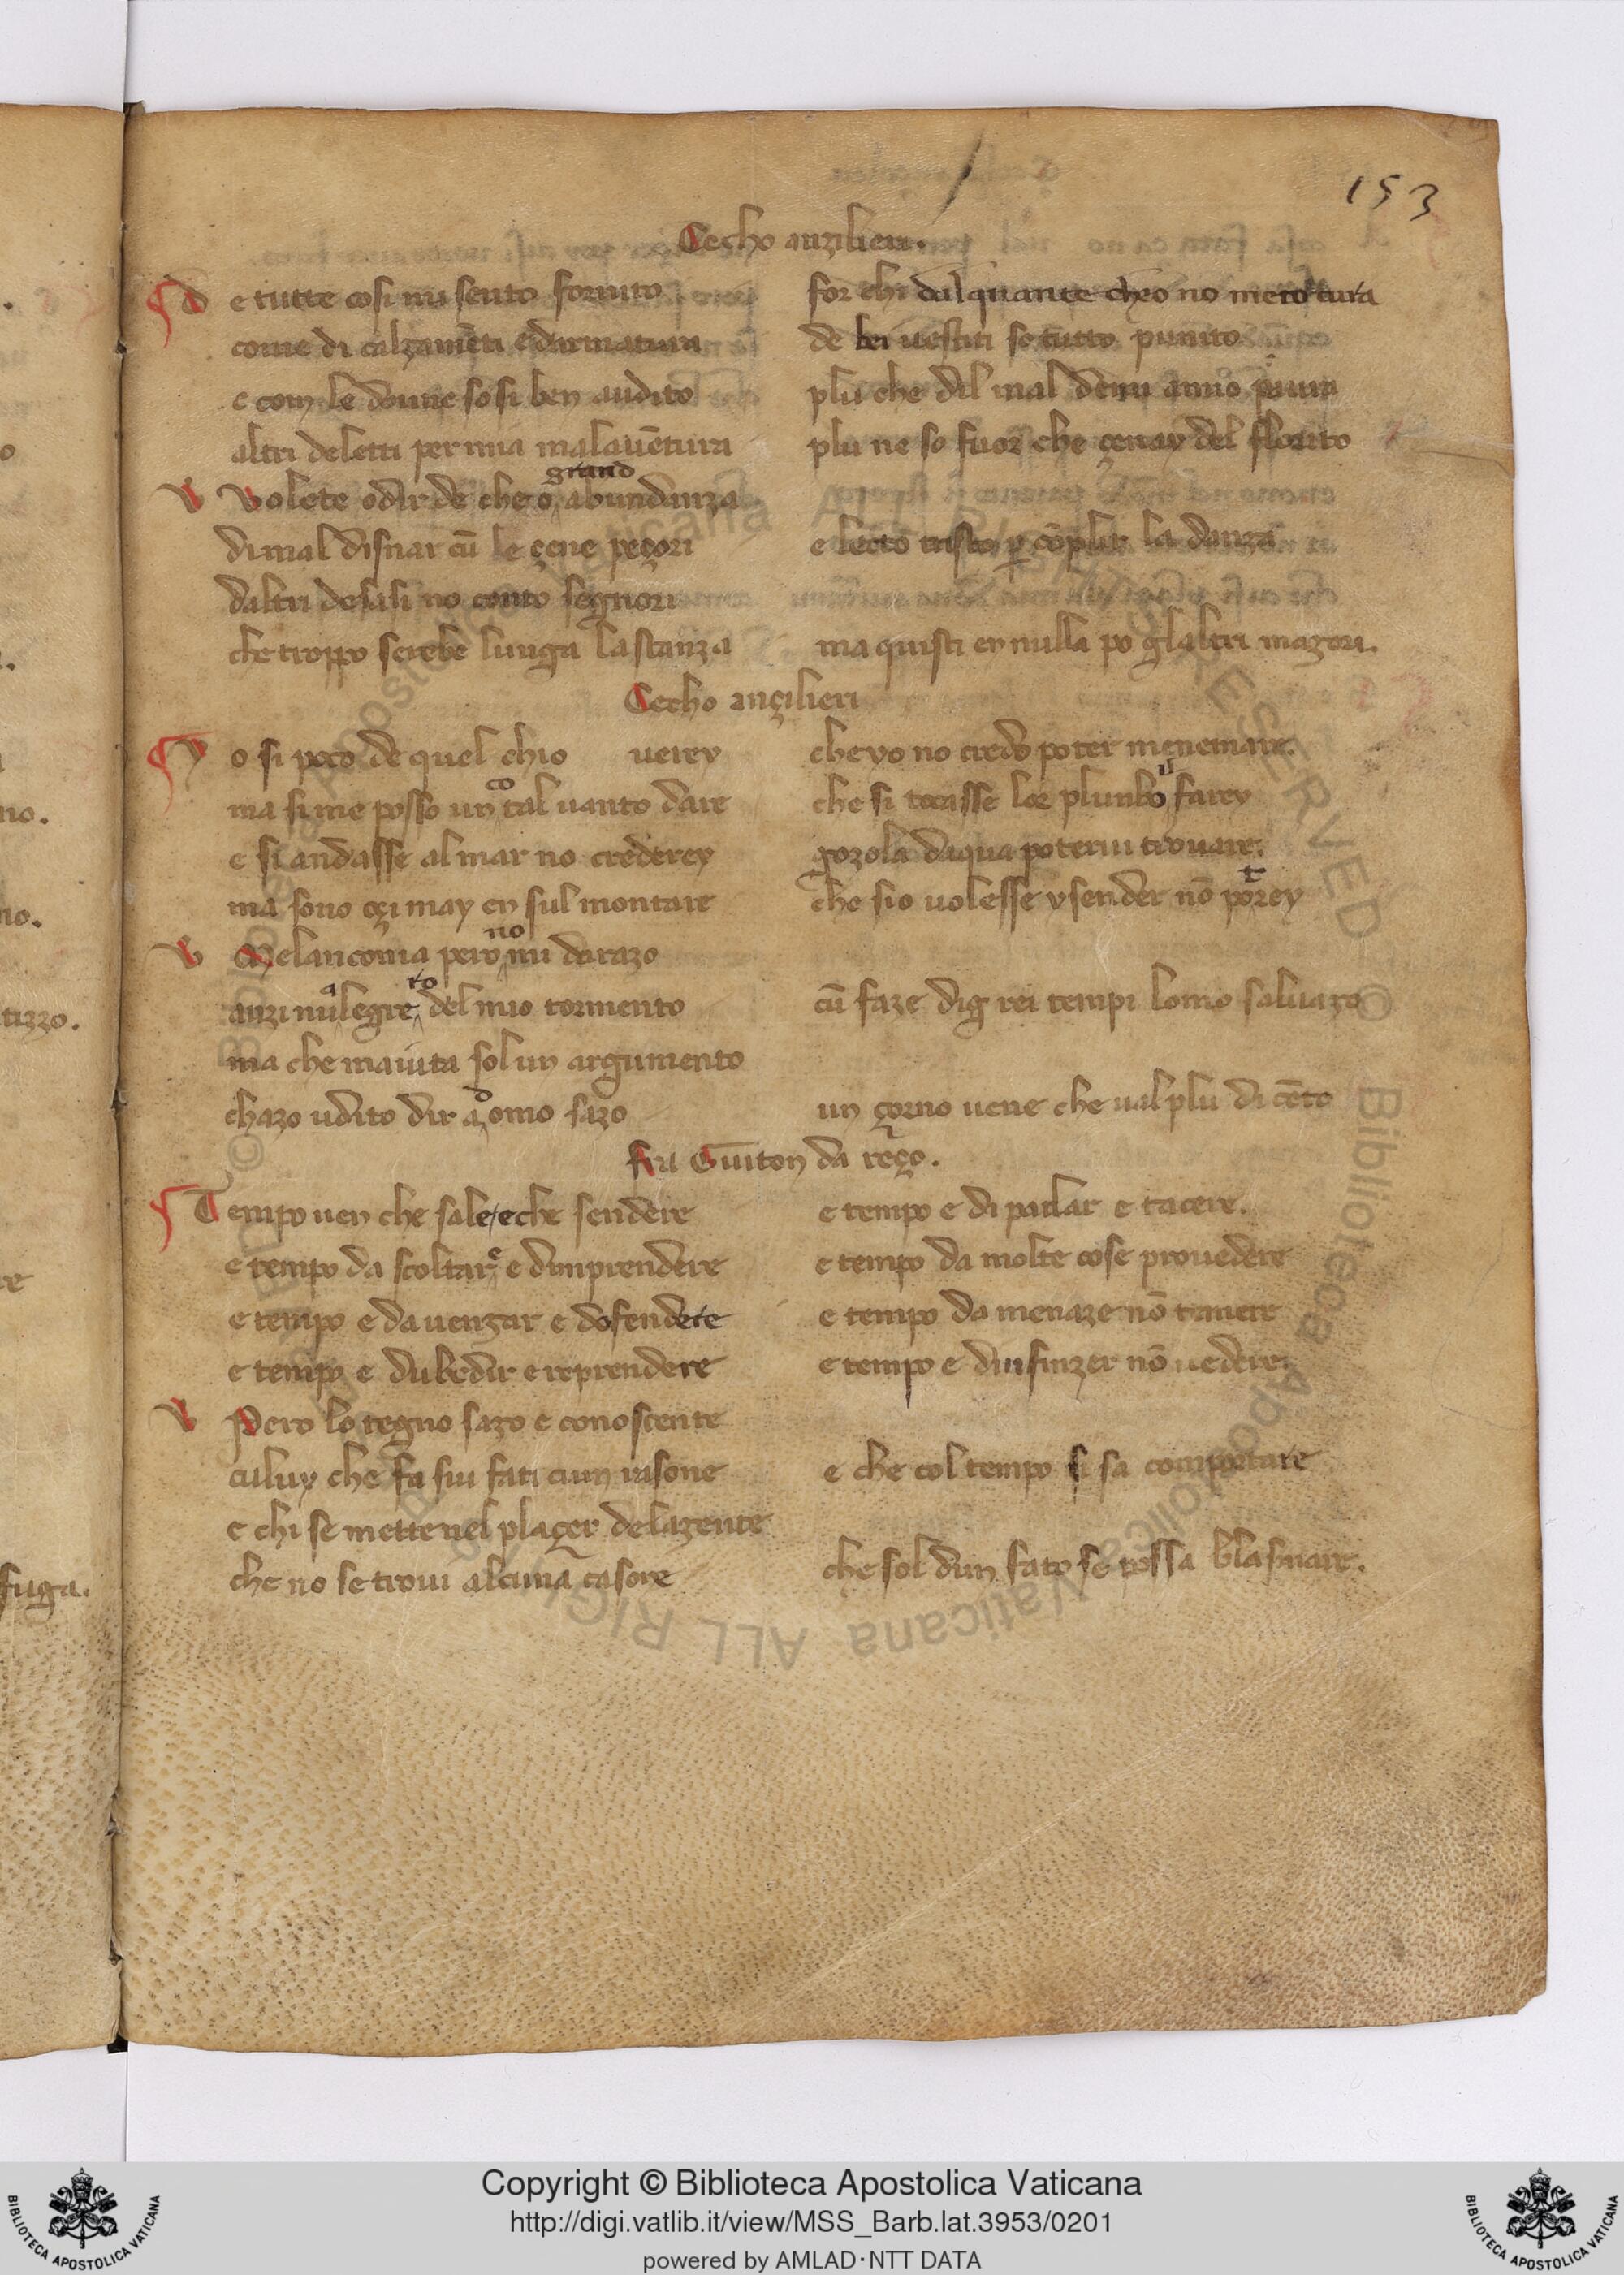 153
Cecho anzilieri.
De tutte cosi mi sento fornito for chi dalquante cheo no meto cura
come di calzamēti e darmatura de bei uestiti so tutto punito
e com le donne so si ben audito plu che del mal demi anno paura
altri deletti per mia malauētura plu ne so fuor che çenay del florito
V Volete odir de che o grand abundanza
di mal disnar cū le çene peçori e lecto tristo p cōplir la danza
daltri desasi no conto segnori
che troppo serebe lunga la stanza ma quisti en nulla po glaltri mazori.
Cecho ançilieri
Yo si poco de quel chio uerey che yo no credo poter menemare.
ma si me posso un co tal uanto dare che si tocasse lor plunbo u farey
e si andasse al mar no crederey gozola daqua potermi trouare.
ma sono oçi may en sul montare che sio uolesse ysender nō po t rey
V Melanconia pero no mi darazo
anzi malegre to del mio tormento cū faze dig rei tempi lomo saluazo
ma che maiuta sol un argumento
chazo udito dir a o omo sazo un çorno uene che ual plu di cēto
fra Guiton da reço.
Tempo uen che sale e che sendere e tempo e di parlar e tacere.
e tempo da scoltare e dimprendere e tempo da molte cose prouedere
e tempo e da uenzar e defendere e tempo da menaze nō temere
e tempo e dubedir e reprendere e tempo e dinfinzer nō uedere.
V Pero lo tegno sazo e conoscente
culuy che fa sui fati cum rasone e che col tempo si sa comportare
e chi se mette nel plaçer de lazente
che no se troui alcuna casone che sol dun fato se possa blasmare.
Copyright © Biblioteca Apostolica Vaticana
http://digi.vatlib.it/view/MSS_Barb.lat.3953/0201
powered by AMLAD·NTT DATA
BIBLIOTECA APOSTOLICA VATICANA
BIBLIOTECA APOSTOLICA VATICANA